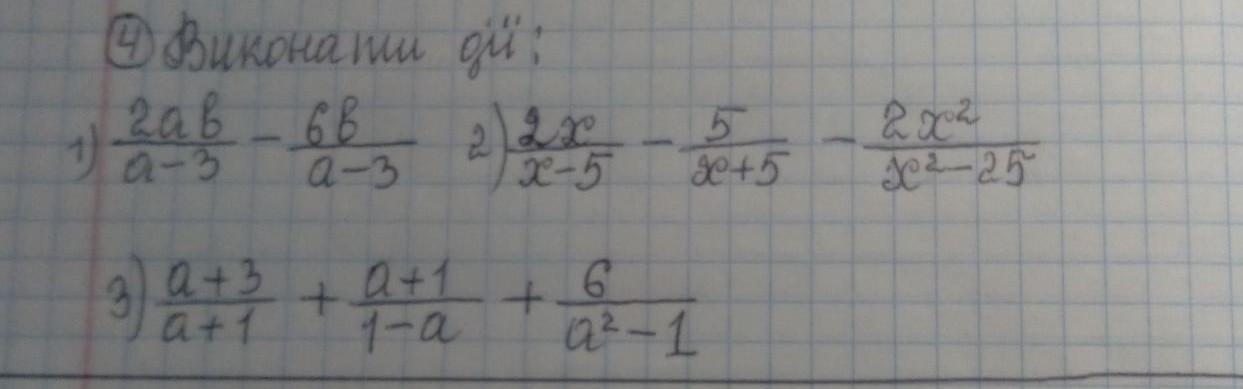 4 Виконати дії:
1) 2ab/(a-3) - 6b/(a-3) 2) 2x/(x-5) - 5/(x+5) - 2x²/(x²-25)
3) (a+3)/(a+1) + (a+1)/(1-a) + 6/(a²-1)